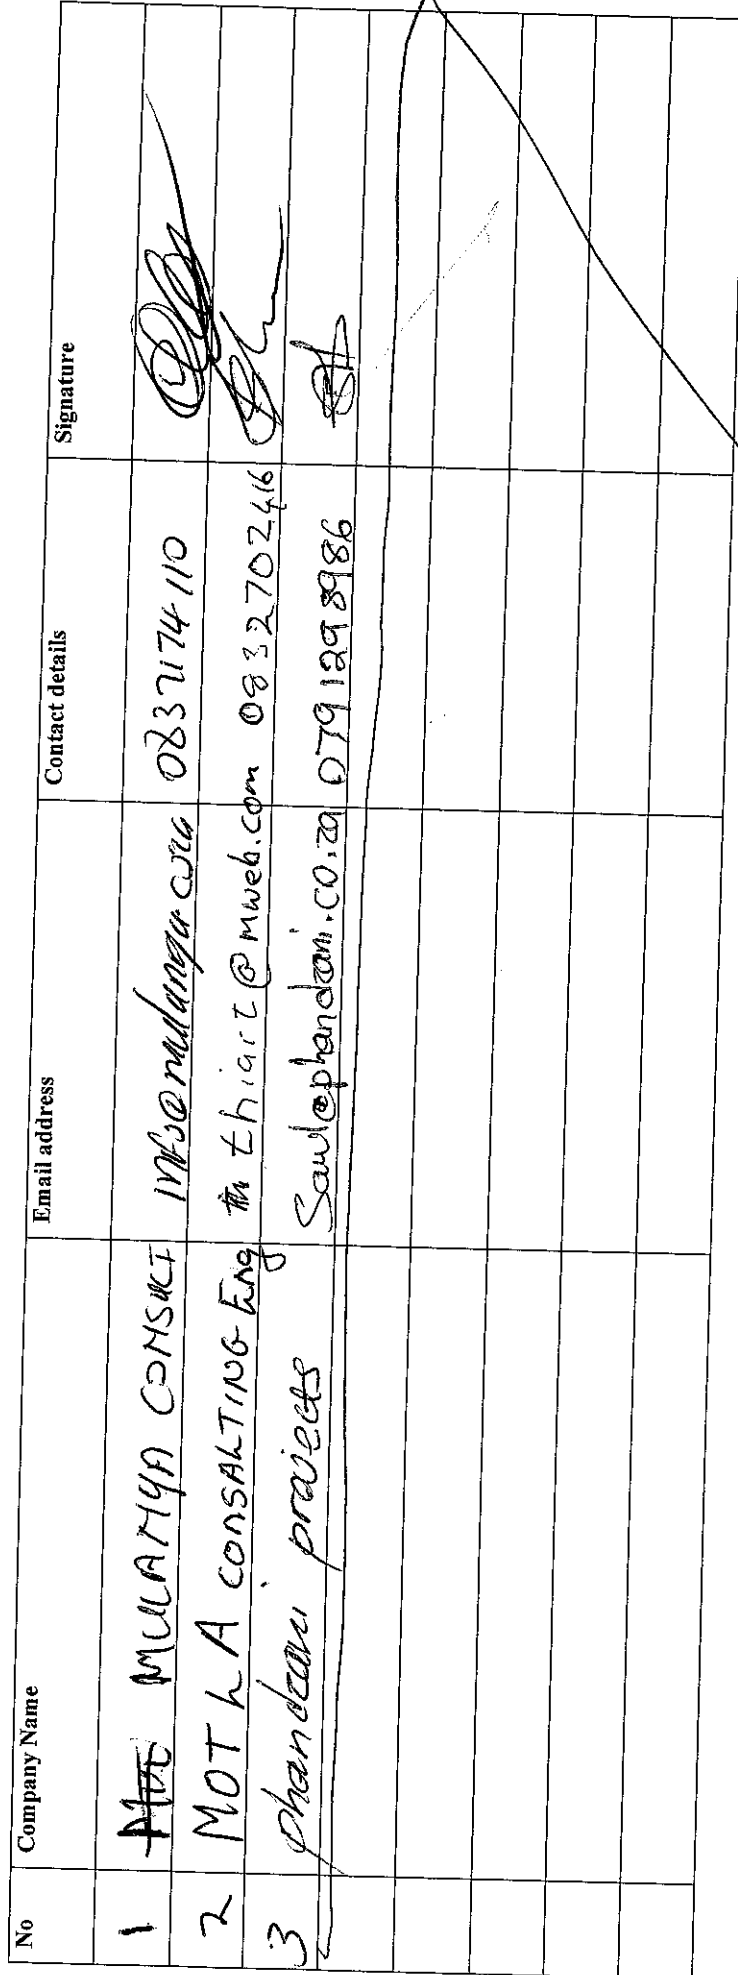 No Company Name Email address Contact details Signature
1 MULAMYA CONSULT 083 7174 110
2 MOTLA CONSALTING Eng thiart@mweb.com 0832702416
3 phandzani projects Saul@phandzani.co.za 0791298986